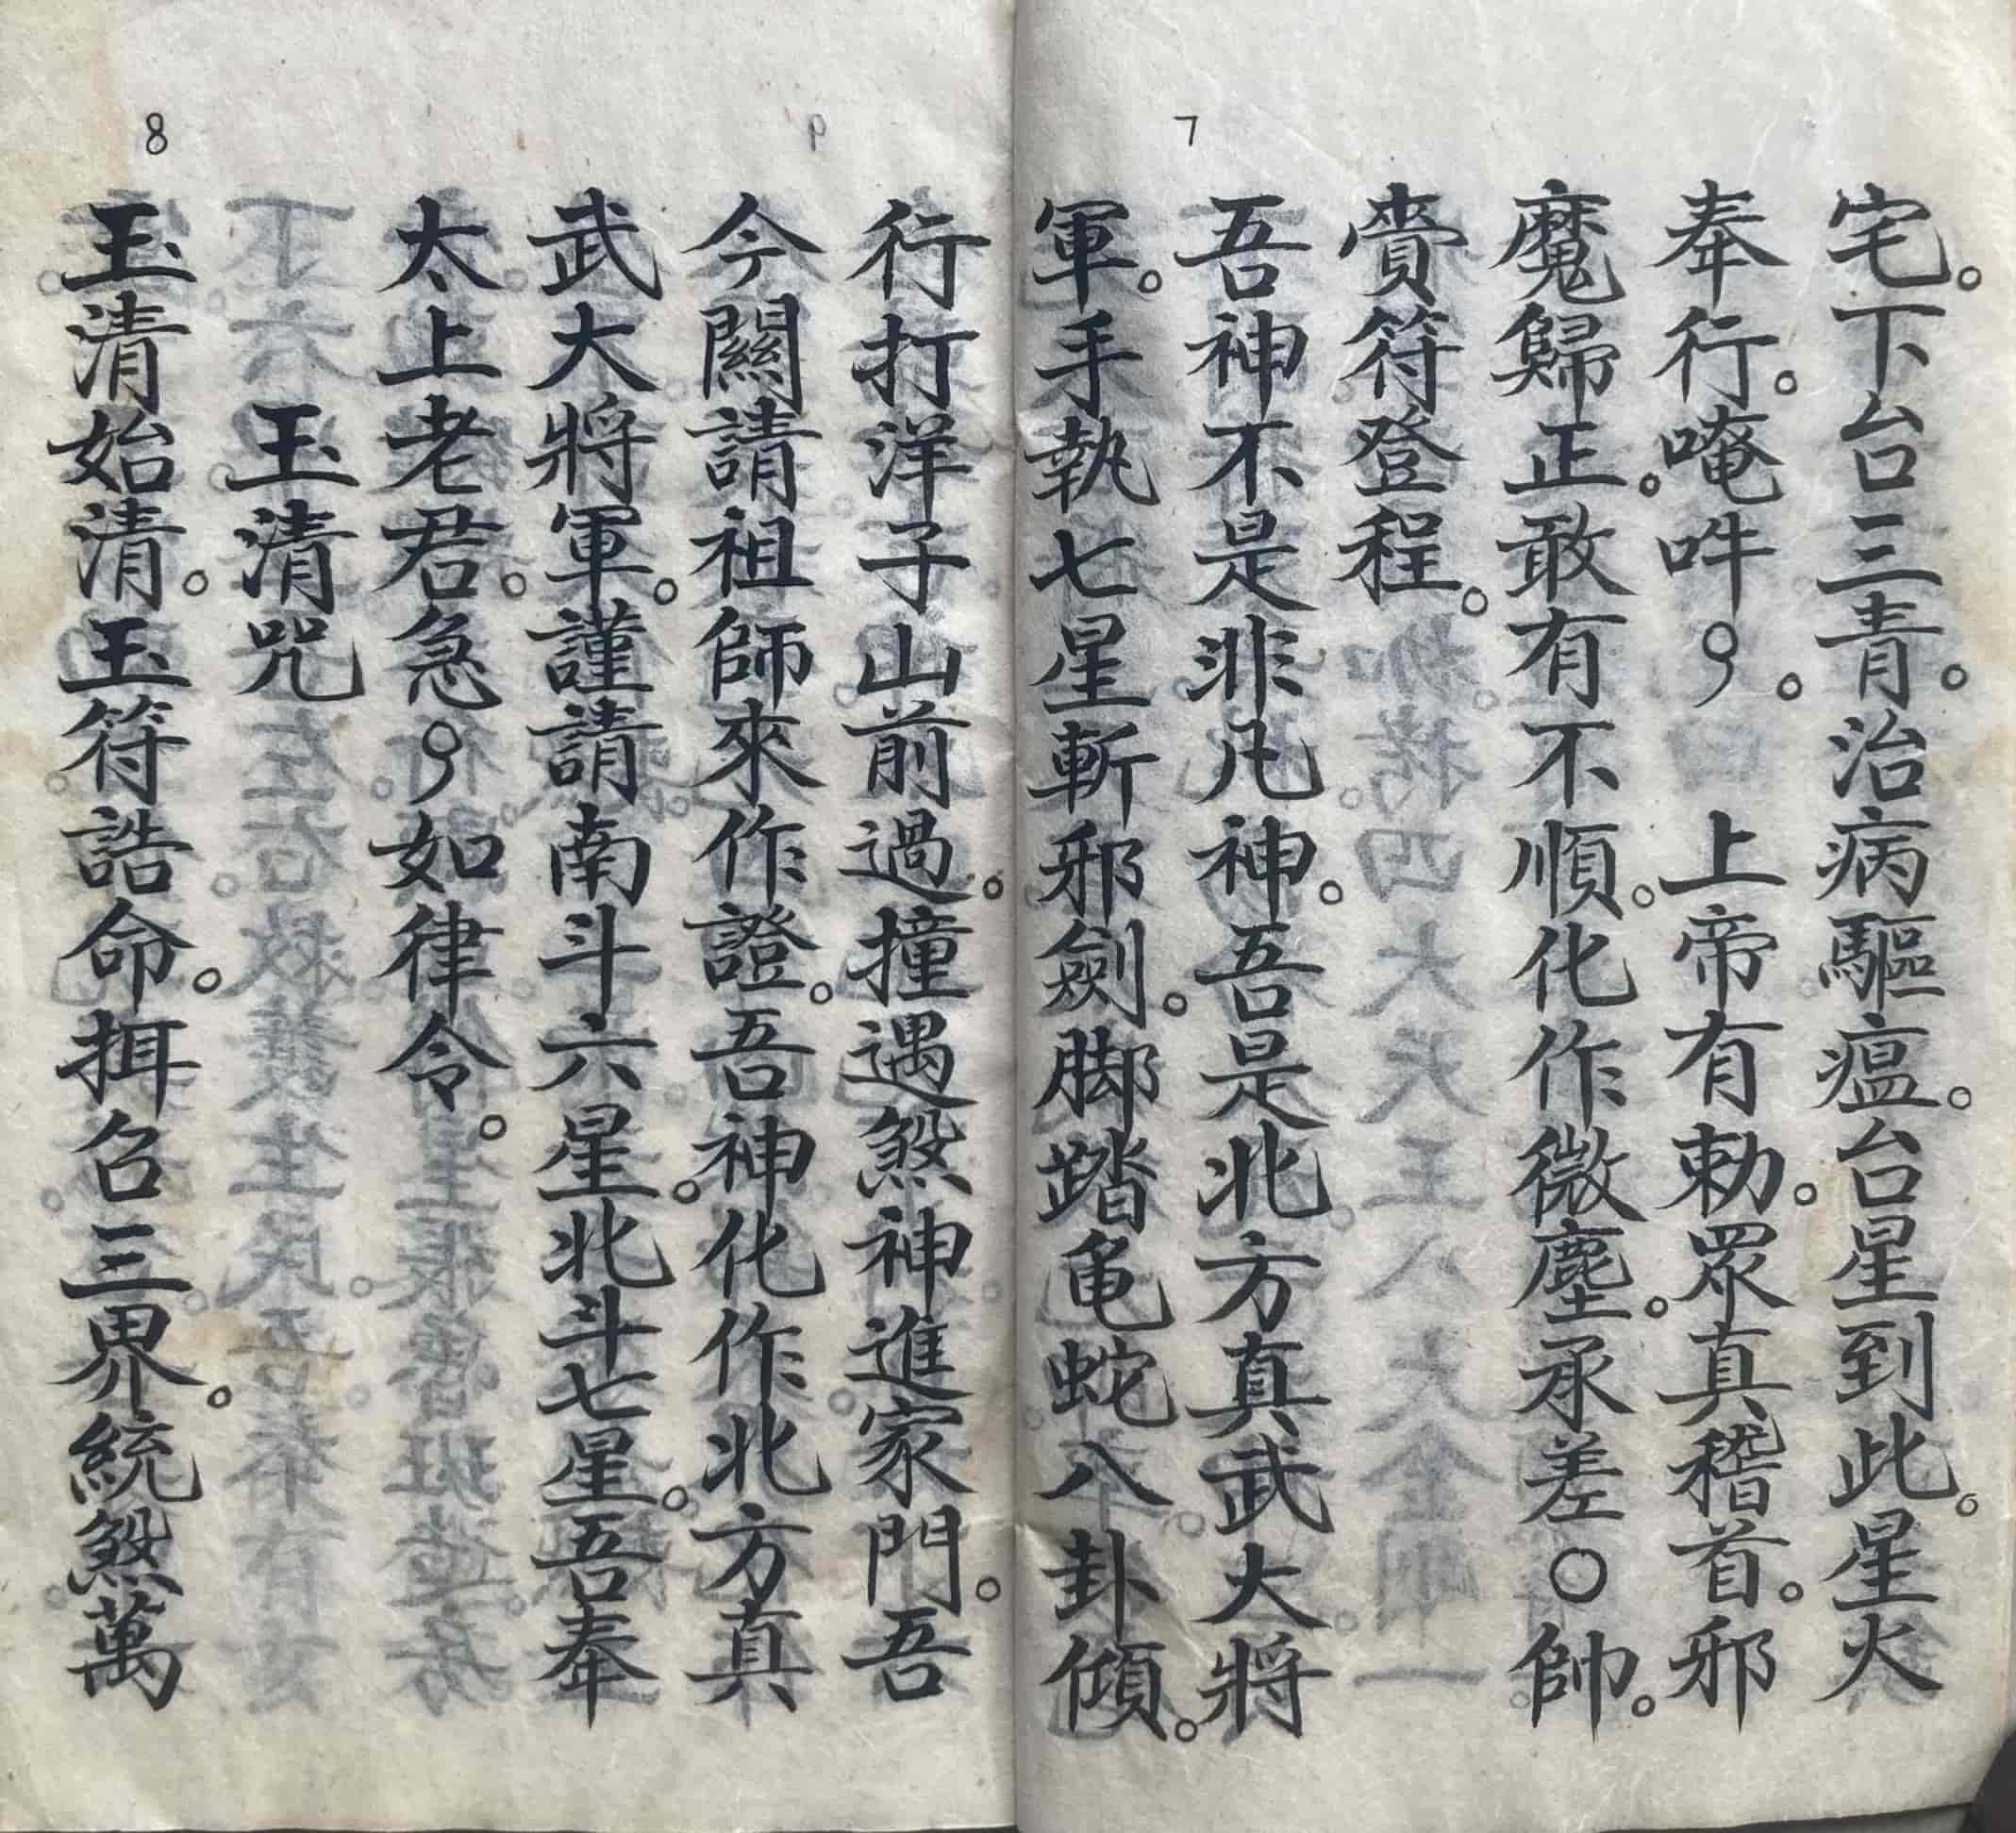 7
宅。下台三青。治病驅瘟。台星到此。星火
奉行。唵吽〻。上帝有勅。眾真稽首。邪
魔歸正。敢有不順。化作微塵。承差○帥。
賫符登程。
吾神不是非凡神。吾是北方真武大將
軍。手執七星斬邪劍。脚踏龟蛇八卦傾。
8
行打洋子山前過。撞遇煞神進家門。吾
今關請祖師來作證。吾神化作北方真
武大將軍。謹請南斗六星。北斗七星。吾奉
太上老君。急〻如律令。
玉清咒
玉清始清。玉符誥命。挕召三界。統煞萬